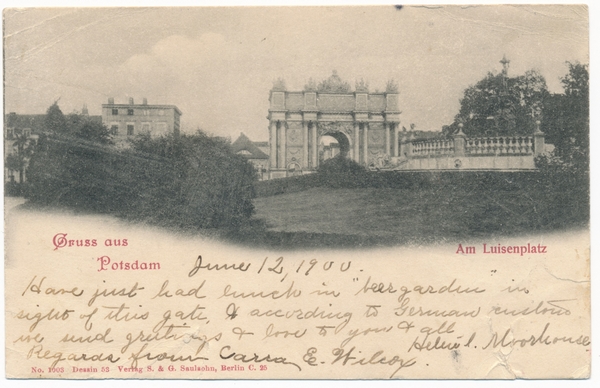 Gruss aus
Potsdam
Am Luisenplatz
June 12, 1900.
Have just had lunch in "beergarden" in
sight of this gate & according to German custom
we send greetings & love to you & all
Helen L. Moorhouse.
Regards from Carra E. Wilcox.
No. 1003 Dessin 52 Verlag S. & G. Saulsohn, Berlin C. 25